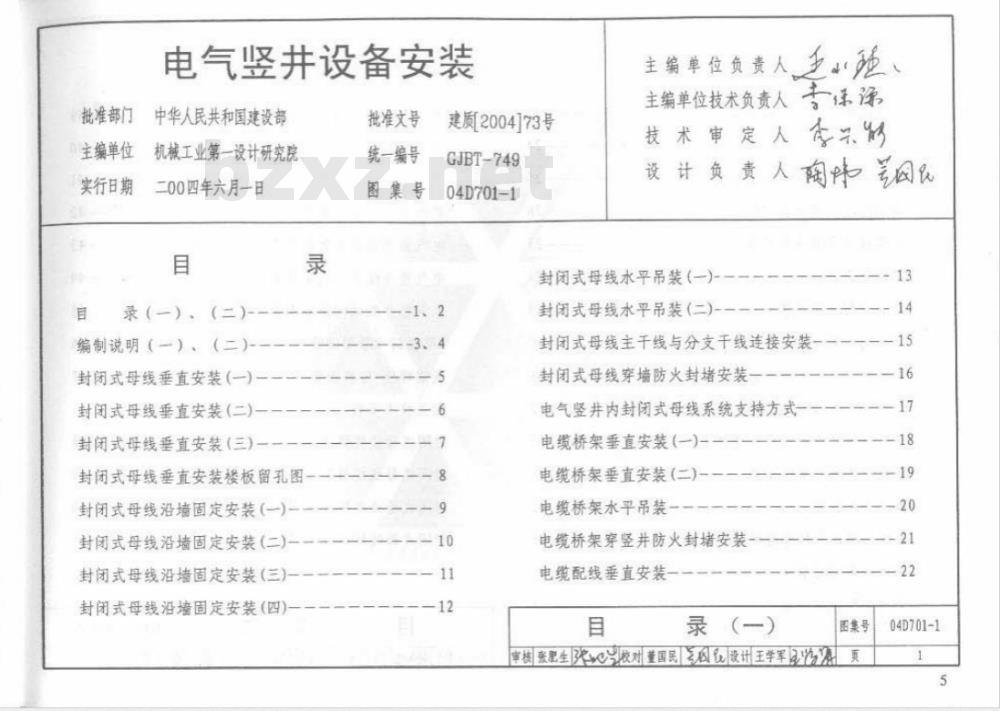 电气竖井设备安装
批准部门 中华人民共和国建设部 批准文号 建质[2004]73号
主编单位 机械工业第一设计研究院 统一编号 GJBT-749
实行日期 二00四年六月一日 图集号 04D701-1
主编单位负责人
主编单位技术负责人
技术审定人
设计负责人
bzxz.net
目 录
目 录(一)、(二)------1、2
编制说明(一)、(二)------3、4
封闭式母线垂直安装(一)------5
封闭式母线垂直安装(二)------6
封闭式母线垂直安装(三)------7
封闭式母线垂直安装楼板留孔图------8
封闭式母线沿墙固定安装(一)------9
封闭式母线沿墙固定安装(二)------10
封闭式母线沿墙固定安装(三)------11
封闭式母线沿墙固定安装(四)------12
封闭式母线水平吊装(一)------13
封闭式母线水平吊装(二)------14
封闭式母线主干线与分支干线连接安装------15
封闭式母线穿墙防火封堵安装------16
电气竖井内封闭式母线系统支持方式------17
电缆桥架垂直安装(一)------18
电缆桥架垂直安装(二)------19
电缆桥架水平吊装------20
电缆桥架穿竖井防火封堵安装------21
电缆配线垂直安装------22
目 录 (一) 图集号 04D701-1
审核 张肥生 校对 董国民 设计 王学军 页 1
5